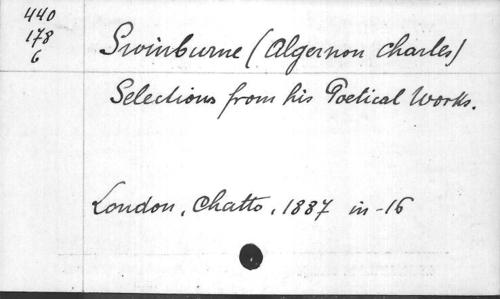 440
178
6
Swinburne (Algernon Charles)
Selections from his Poetical Works.
London, Chatto, 1887 in-16